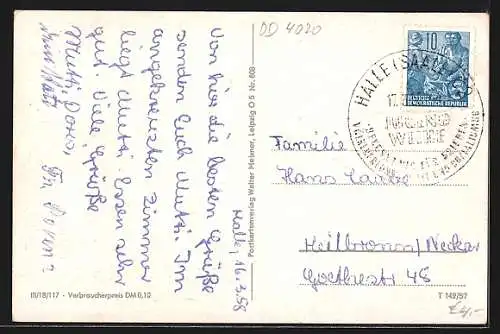 DD 4020
Halle, 16.3.58
Von hier die besten Grüße
senden Euch Mutti. Im
angekreuzten Zimmer
liegt Mutti. Essen sehr
gut. Viele Grüße
Mutti, Doris,
III/18/117 - Verbraucherpreis DM 0,10
Postkartenverlag Walter Meixner, Leipzig O 5 Nr. 608
10
DEUTSCHE
DEMOKRATISCHE REPUBLIK
HALLE (SAALE)
17.3.
Familie
Hans
Heilbronn/Neckar
Goethestr 48
T 149/57
€4,-